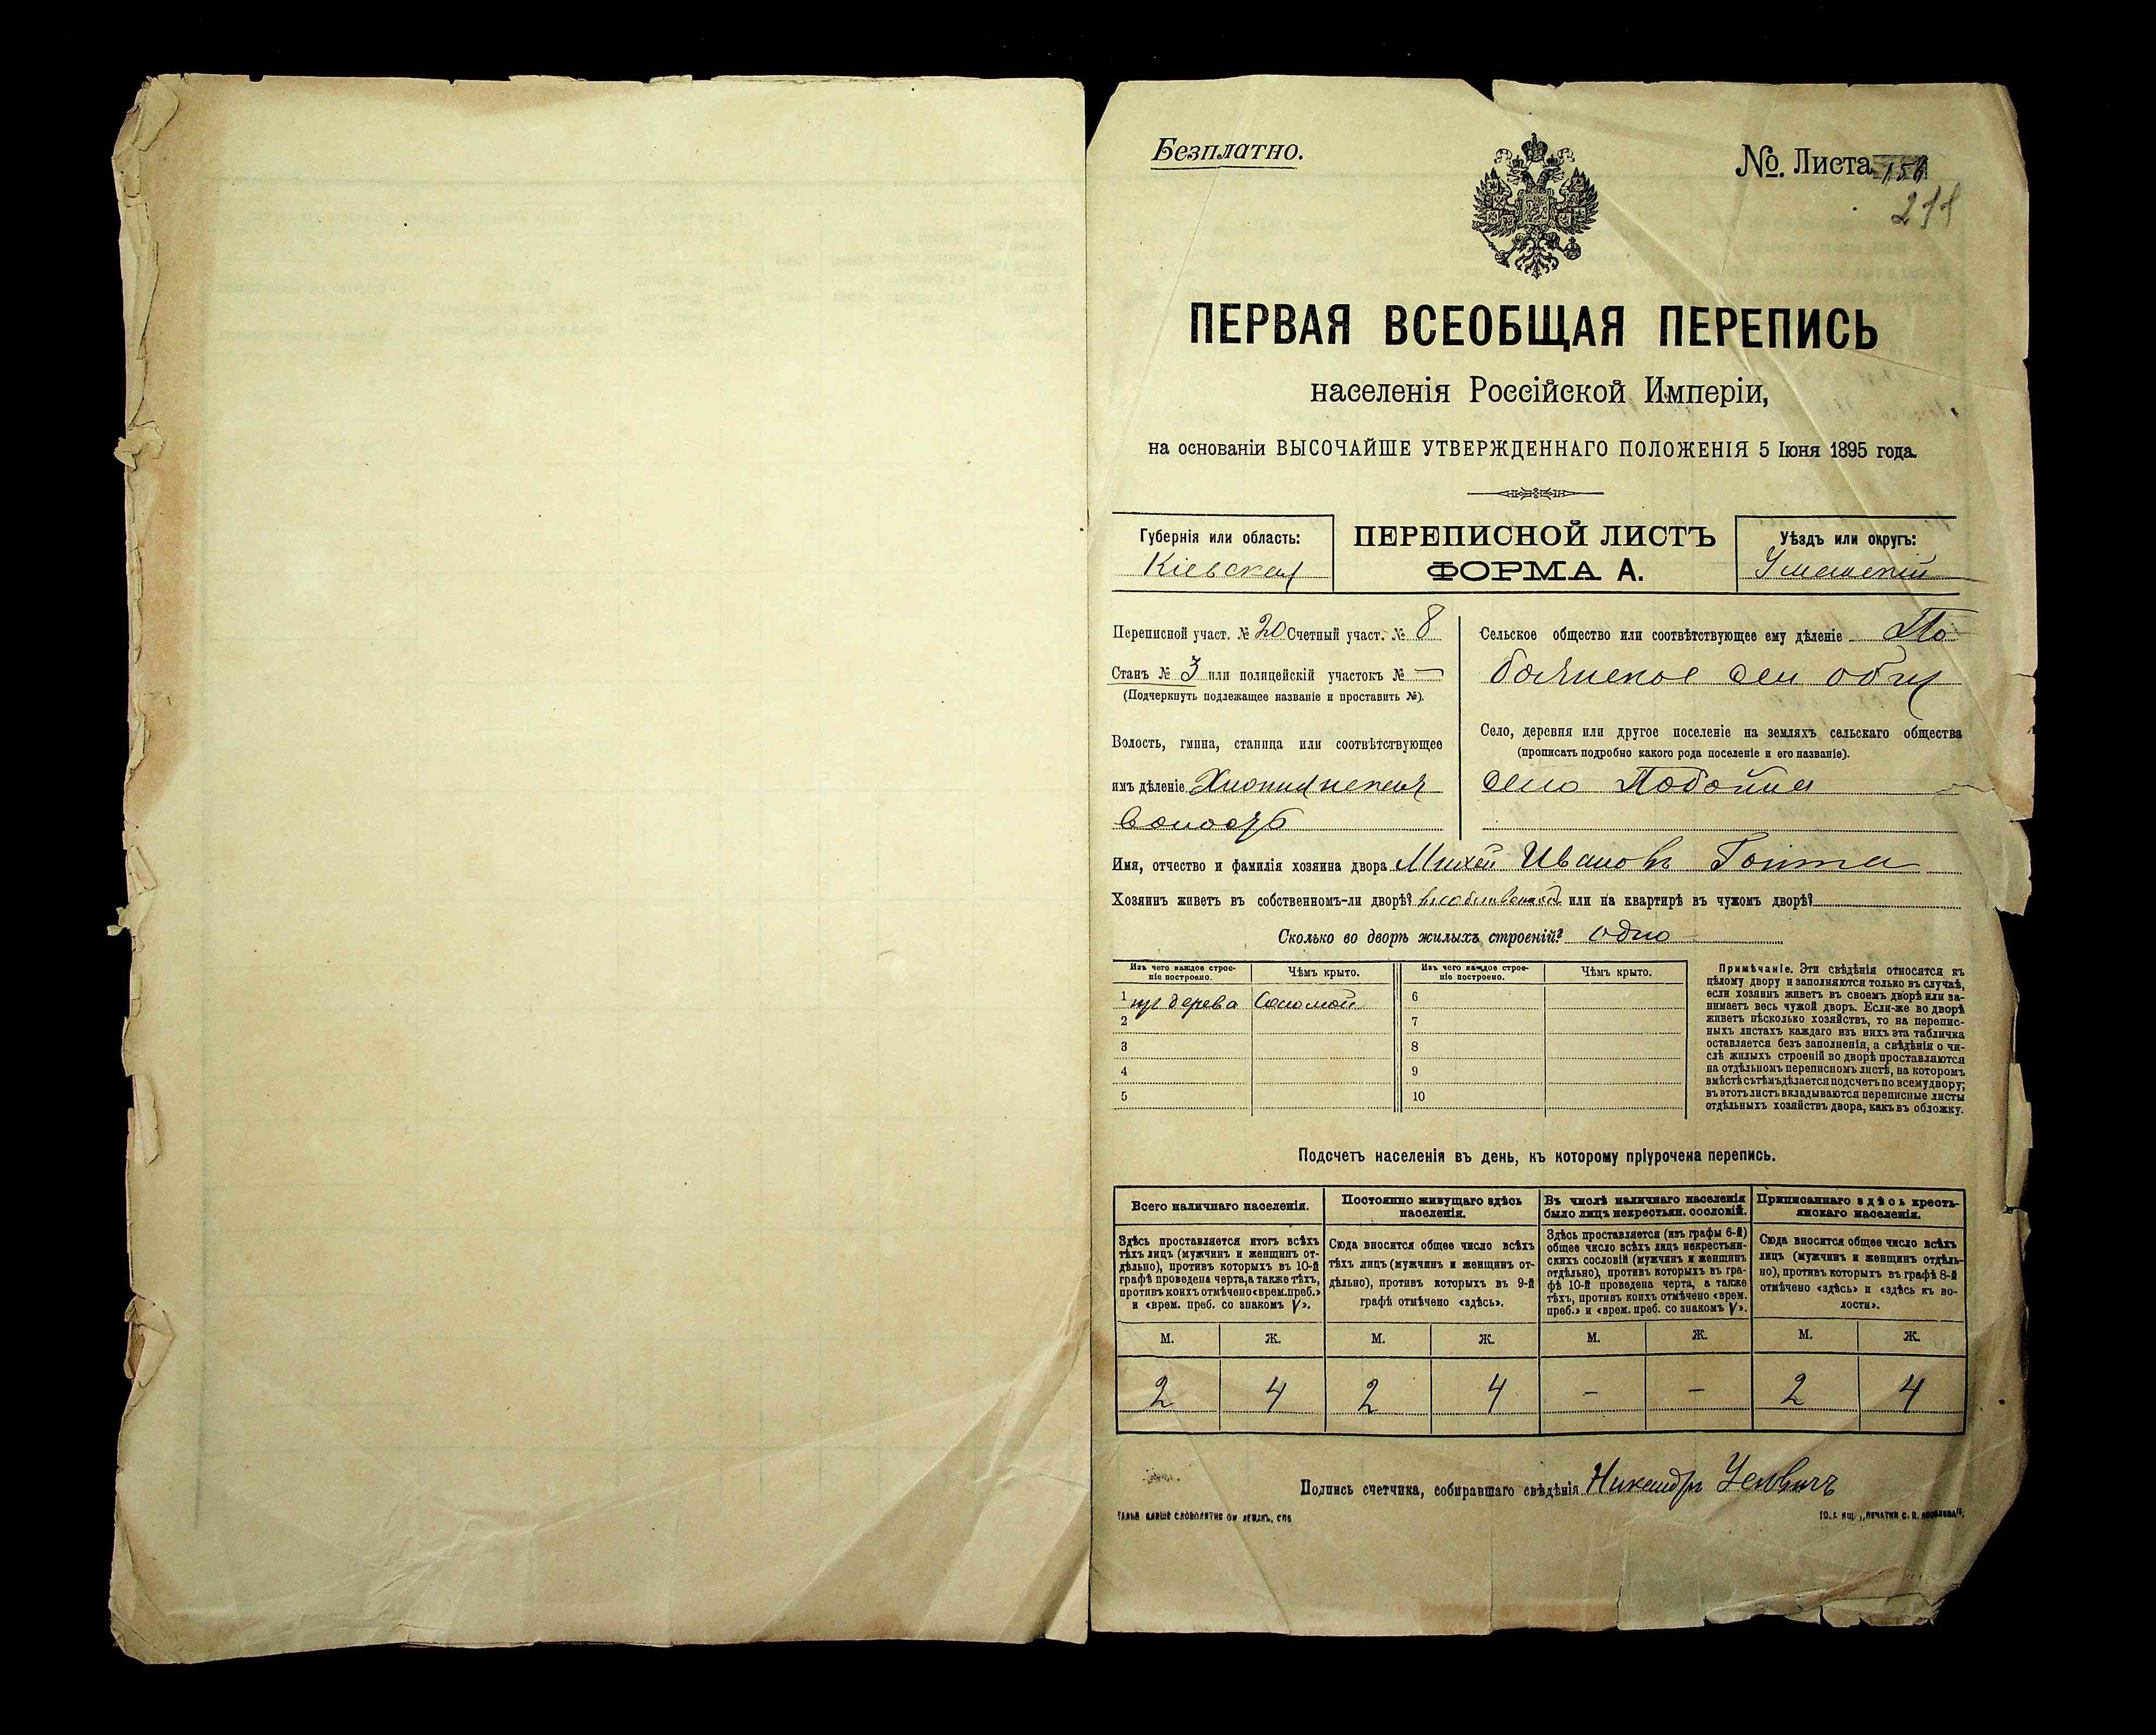 Безплатно.
№. Листа 156
211
ПЕРВАЯ ВСЕОБЩАЯ ПЕРЕПИСЬ
населенія Россійской Имперіи,
на основаніи ВЫСОЧАЙШЕ УТВЕРЖДЕННАГО ПОЛОЖЕНІЯ 5 Іюня 1895 года.
Губернія или область:
Кіевская
ПЕРЕПИСНОЙ ЛИСТЪ
ФОРМА А.
Уѣздъ или округъ:
Уманскій
Переписной участ. № 20 Счетный участ. № 8
Станъ № 3 или полицейскій участокъ № —
(Подчеркнуть подлежащее названіе и проставить №).
Волость, гмина, станица или соотвѣтствующее
имъ дѣленіе
волость
Сельское общество или соотвѣтствующее ему дѣленіе По
боянское сел общ
Село, деревня или другое поселеніе на земляхъ сельскаго общества
(прописать подробно какого рода поселеніе и его названіе).
село Побойна
Имя, отчество и фамилія хозяина двора Михей Ивановъ
Хозяинъ живетъ въ собственномъ-ли дворѣ? или на квартирѣ въ чужомъ дворѣ?
Сколько во дворѣ жилыхъ строеній? одно
Изъ чего каждое строе-
ніе построено.
Чѣмъ крыто.
Изъ чего каждое строе-
ніе построено.
Чѣмъ крыто.
1 изъ дерева Соломой 6
2 7
3 8
4 9
5 10
Примѣчаніе. Эти свѣдѣнія относятся къ
цѣлому двору и заполняются только въ случаѣ,
если хозяинъ живетъ въ своемъ дворѣ или за-
нимаетъ весь чужой дворъ. Если-же во дворѣ
живетъ нѣсколько хозяйствъ, то на перепис-
ныхъ листахъ каждаго изъ нихъ эта табличка
оставляется безъ заполненія, а свѣдѣнія о чи-
слѣ жилыхъ строеній во дворѣ проставляются
на отдѣльномъ переписномъ листѣ, на которомъ
вмѣстѣ съ тѣмъ дѣлается подсчетъ по всему двору;
въ этотъ листъ вкладываются переписные листы
отдѣльныхъ хозяйствъ двора, какъ въ обложку.
Подсчетъ населенія въ день, къ которому пріурочена перепись.
Всего наличнаго населенія.
Здѣсь проставляется итогъ всѣхъ
тѣхъ лицъ (мужчинъ и женщинъ от-
дѣльно), противъ которыхъ въ 10-й
графѣ проведена черта, а также тѣхъ,
противъ коихъ отмѣчено «врем. преб.»
и «врем. преб. со знакомъ V».
Постоянно живущаго здѣсь
населенія.
Сюда вносится общее число всѣхъ
тѣхъ лицъ (мужчинъ и женщинъ от-
дѣльно), противъ которыхъ въ 9-й
графѣ отмѣчено «здѣсь».
Въ числѣ наличнаго населенія
было лицъ некрестьян. сословій.
Здѣсь проставляется (изъ графы 6-й)
общее число всѣхъ лицъ некрестьян-
скихъ сословій (мужчинъ и женщинъ
отдѣльно), противъ которыхъ въ гра-
фѣ 10-й проведена черта, а также
тѣхъ, противъ коихъ отмѣчено «врем.
преб.» и «врем. преб. со знакомъ V».
Приписаннаго здѣсь кресть-
янскаго населенія.
Сюда вносится общее число всѣхъ
лицъ (мужчинъ и женщинъ отдѣль-
но), противъ которыхъ въ графѣ 8-й
отмѣчено «здѣсь» и «здѣсь къ во-
лости».
М. Ж. М. Ж. М. Ж. М. Ж.
2 4 2 4 - - 2 4
Подпись счетчика, собиравшаго свѣдѣнія Никандръ